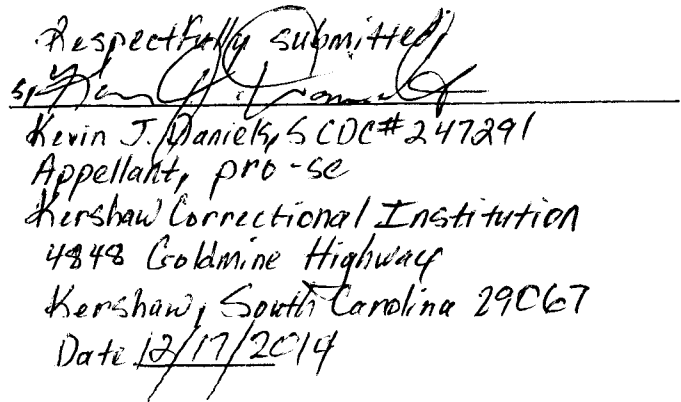 Respectfully submitted,
s/
Kevin J. Daniels, SCDC# 247291
Appellant, pro-se
Kershaw Correctional Institution
4848 Goldmine Highway
Kershaw, South Carolina 29067
Date 12/17/2014